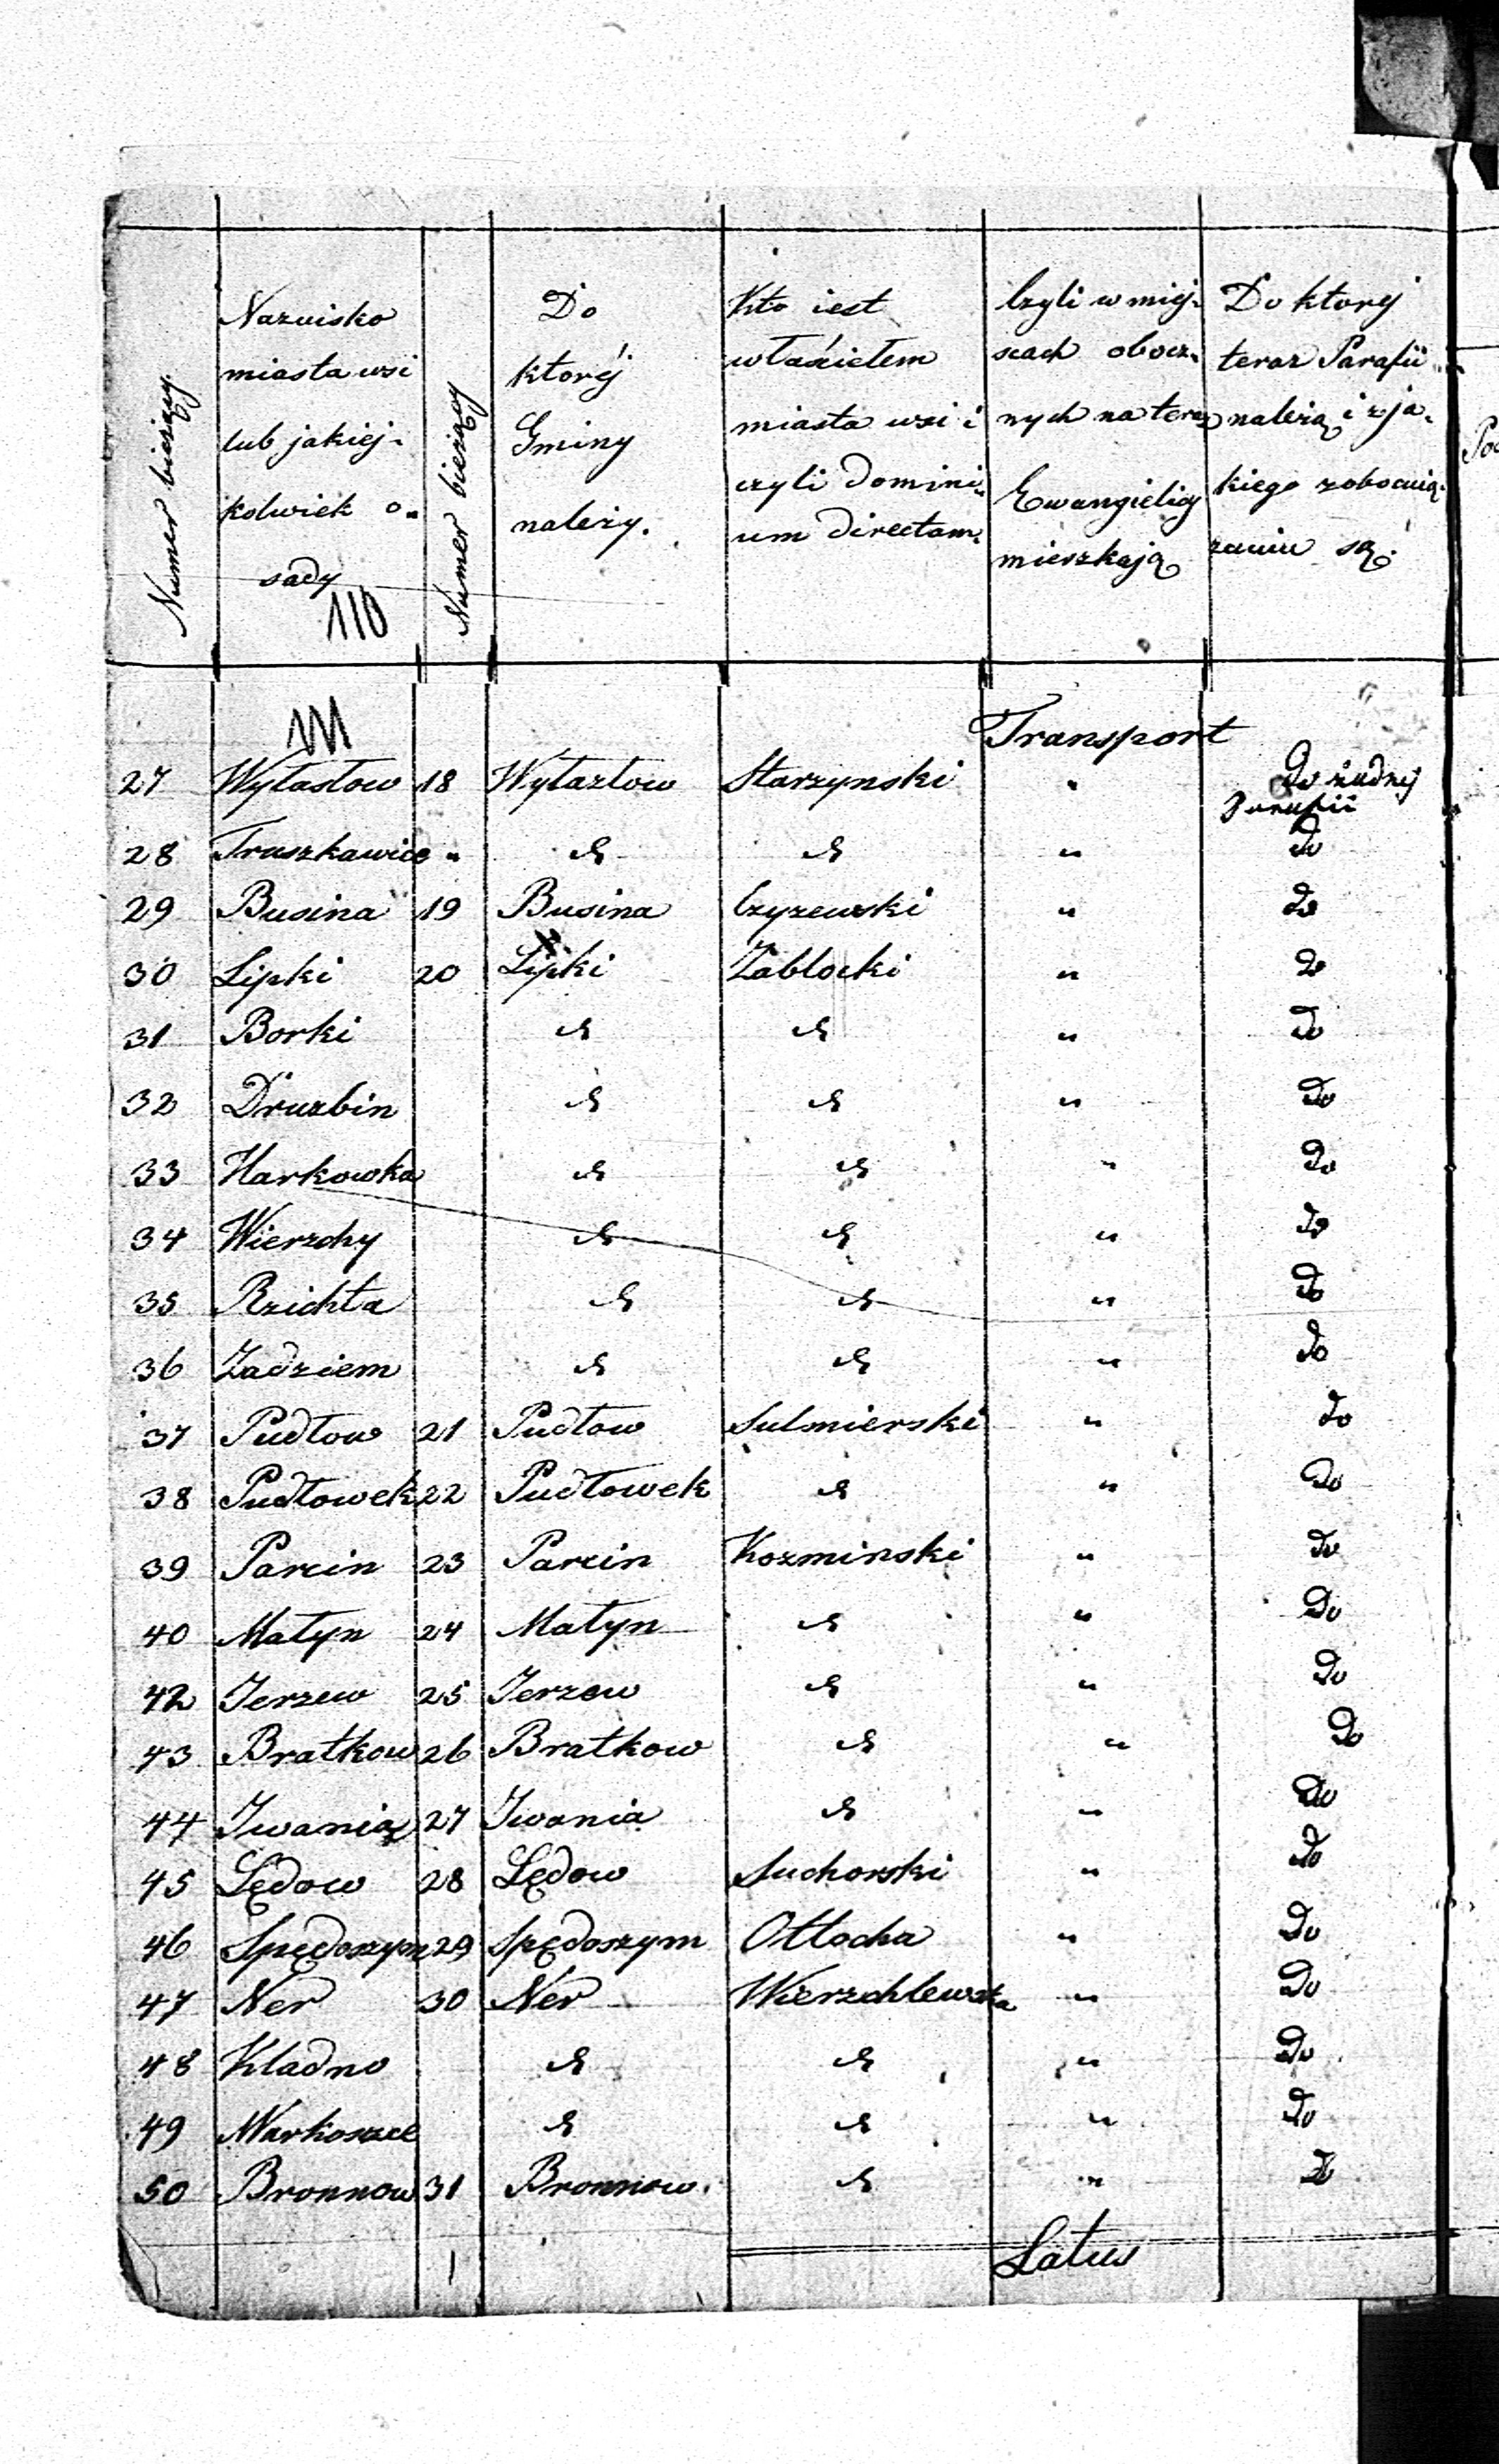 Numer bieżący.
Nazwisko
miasta wsi
lub jakiej-
kolwiek o-
sady
110
Numer bieżący
Do
którey
Gminy
należy.
Kto iest
właścielem
miasta wsi i
czyli Domini-
um Directum.
Czyli w miej-
scach obocz-
nych na teraz
Ewangielicy
mieszkają
Do ktorej
teraz Parafii
należą i z ja-
kiego zobowią-
zaniu są.
111
Transport
27 Wytastow 18 Wytaztow Starzynski " Do żadnej
Parafii
28 Truszkawice " do do " Do
29 Busina 19 Busina Czyzewski " Do
30 Lipki 20 Lipki Zablocki " Do
31 Borki do do " Do
32 Druzbin do do " Do
33 Harkowka do do " Do
34 Wierzchy do do " Do
35 Rzichta do do " Do
36 Zadziem do do " Do
37 Pudłow 21 Pudłow Sulmierski " Do
38 Pudłowek 22 Pudłowek do " Do
39 Parcin 23 Parcin Kozminski " Do
40 Małyn 24 Małyn do " Do
42 Jerzew 25 Jerzew do " Do
43 Bratkow 26 Bratkow do " Do
44 Jwania 27 Jwania do " Do
45 Lędow 28 Lędow Suchorski " Do
46 Spędoszym 29 Spędoszym Otlocha " Do
47 Ner 30 Ner Wierzchlewska " Do
48 Kladno do do " Do
49 Markoszce do do " Do
50 Bronnow 31 Bronnow. do " Do
Latus